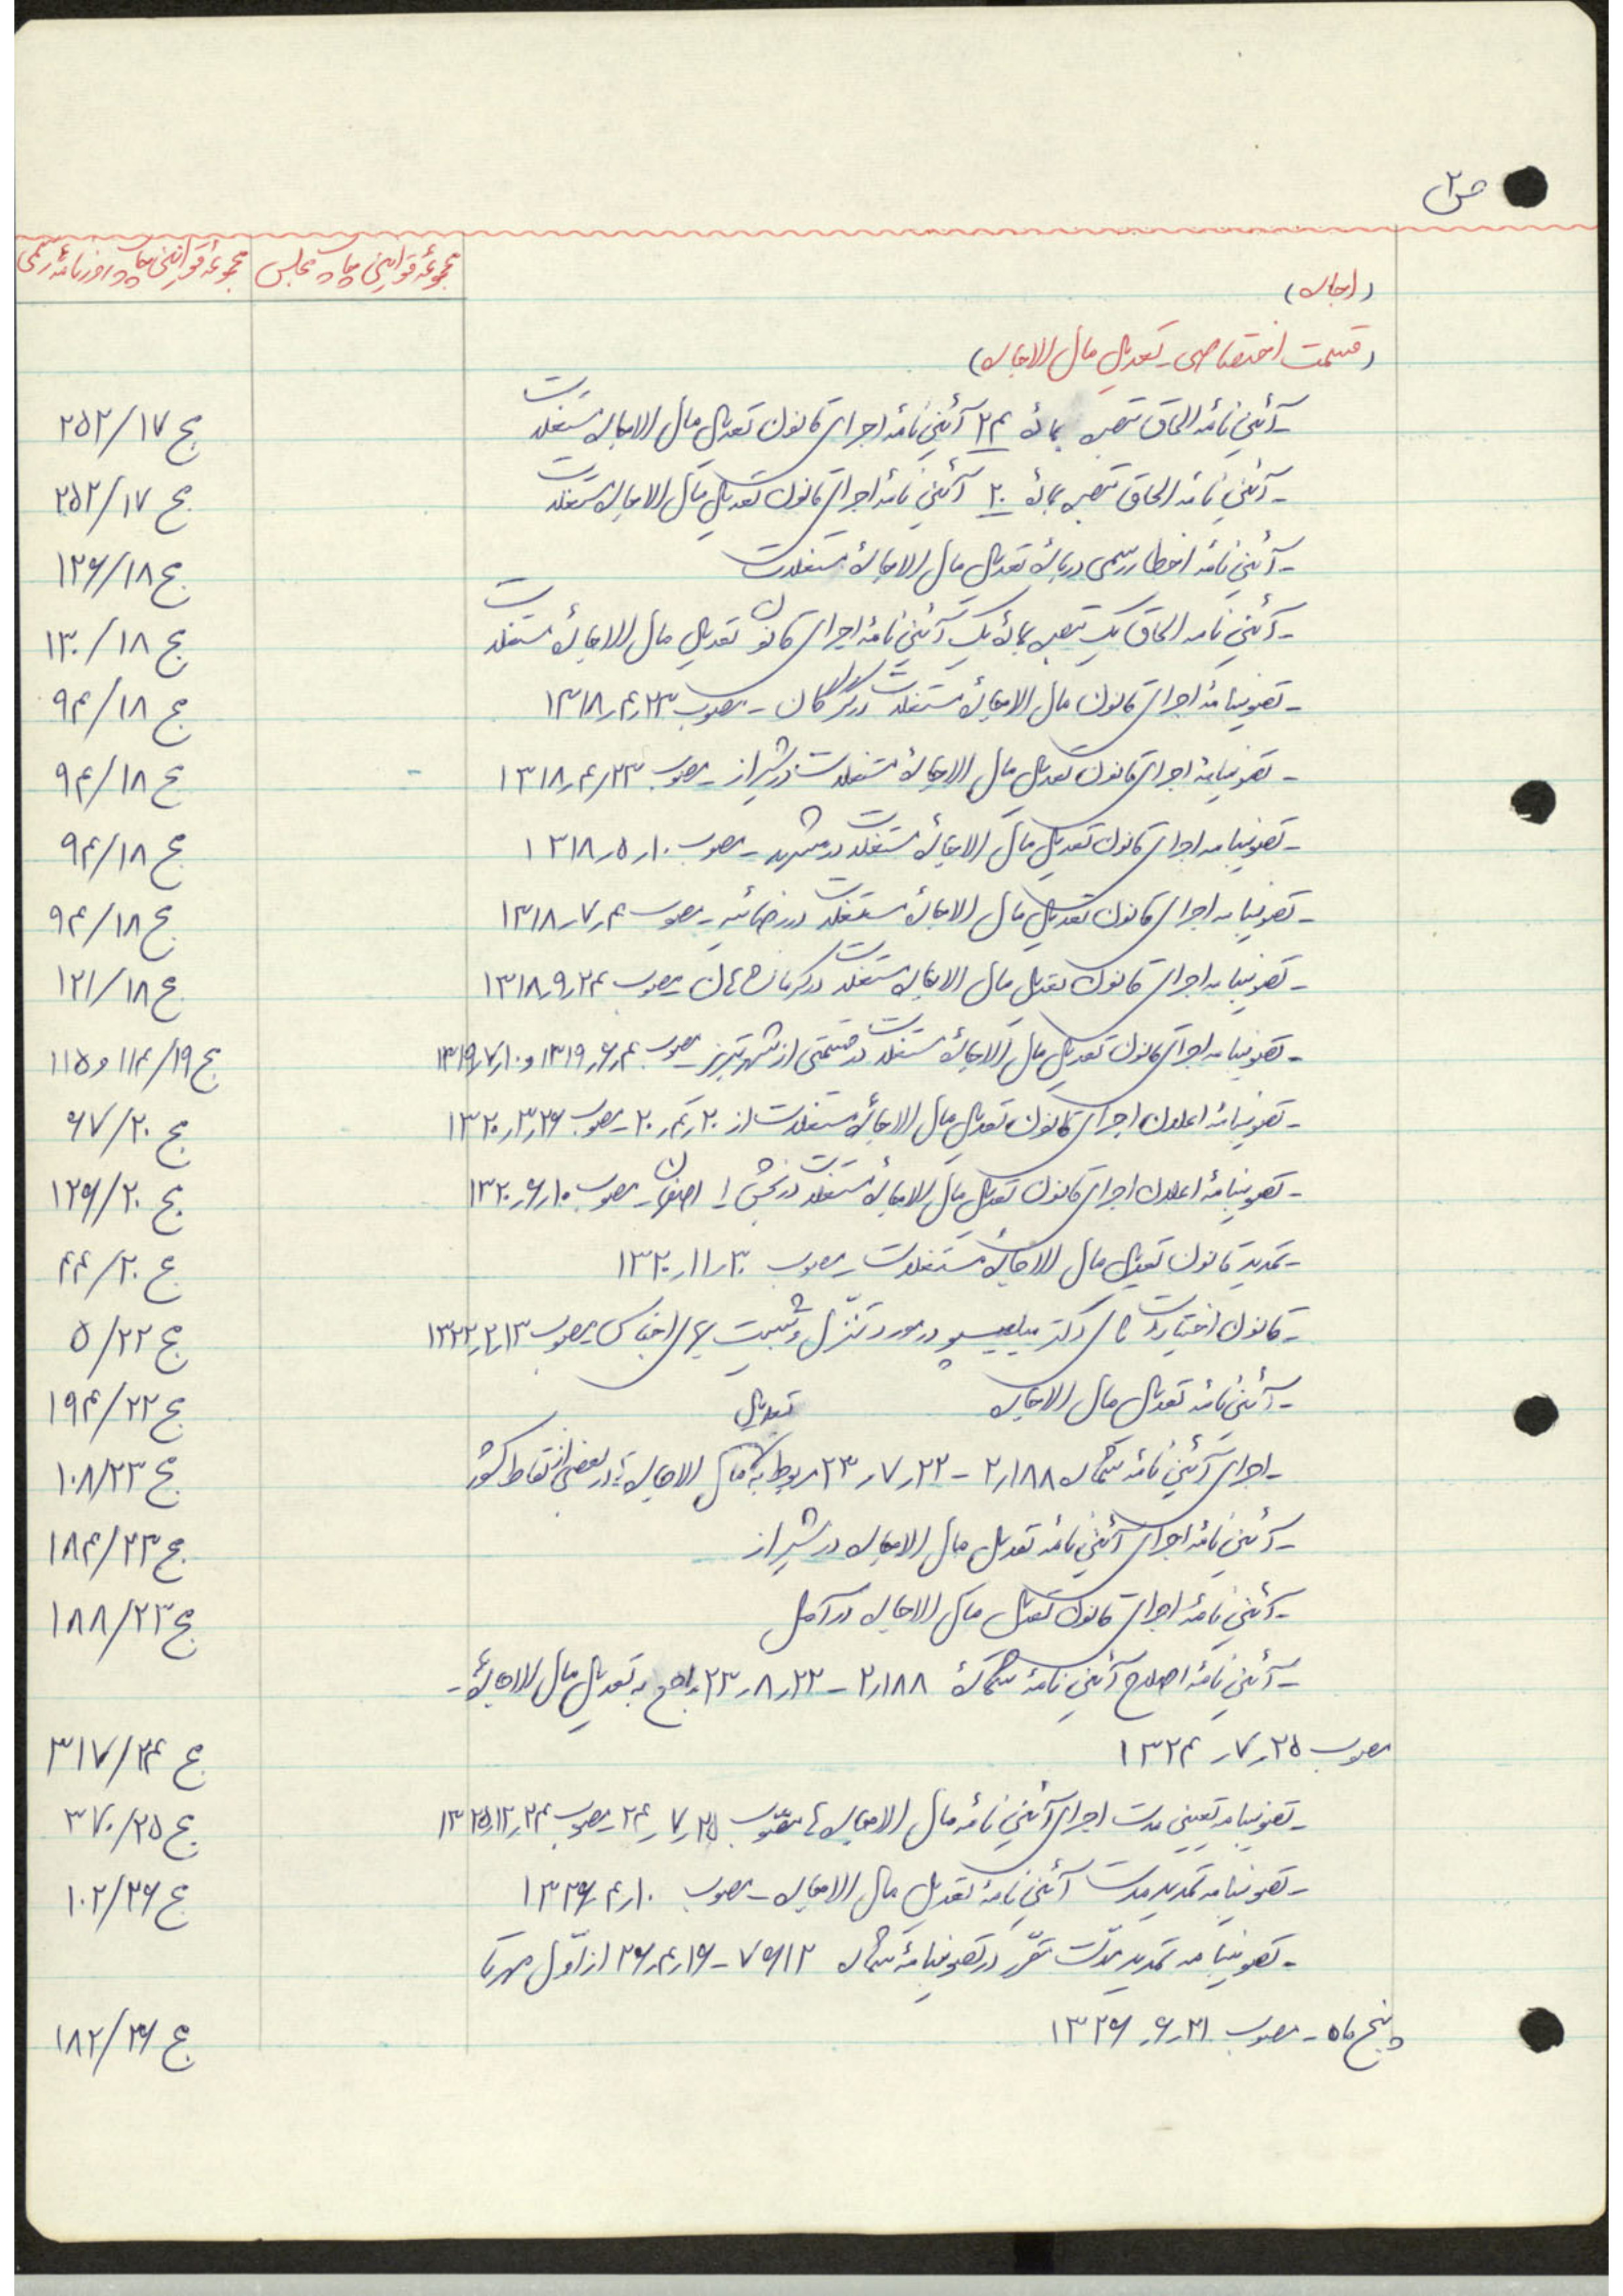 ص ۲
مجموعهٔ قوانین چاپ مجلس
مجموعهٔ قوانین چاپ روزنامهٔ رسمی
(اجاره)
(قسمت اختصاصی ـ تعدیل مال الاجاره)
ـ آئین نامهٔ الحاق تبصره بمادهٔ ۲۴ آئین نامهٔ اجرای قانون تعدیل مال الاجاره مستغلات ج ۲۵۲/۱۷
ـ آئین نامهٔ الحاق تبصره بمادهٔ ۲۰ آئین نامهٔ اجرای قانون تعدیل مال الاجاره مستغلات ج ۲۵۲/۱۷
ـ آئین نامهٔ اخطار رسمی دربارهٔ تعدیل مال الاجارهٔ مستغلات ج ۱۲۶/۱۸
ـ آئین نامه الحاق یک تبصره بمادهٔ یک آئین نامهٔ اجرای قانون تعدیل مال الاجارهٔ مستغلات ج ۱۳۰/۱۸
ـ تصویبنامهٔ اجرای قانون مال الاجارهٔ مستغلات در گرگان ـ مصوب ۲۳ر۴ر۱۳۱۸ ج ۹۴/۱۸
ـ تصویبنامهٔ اجرای قانون تعدیل مال الاجارهٔ مستغلات در شیراز ـ مصوب ۲۳ر۴ر۱۳۱۸ ج ۹۴/۱۸
ـ تصویبنامه اجرای قانون تعدیل مال الاجارهٔ مستغلات در مشهد ـ مصوب ۱۰ر۵ر۱۳۱۸ ج ۹۴/۱۸
ـ تصویبنامه اجرای قانون تعدیل مال الاجارهٔ مستغلات در رضائیه ـ مصوب ۴ر۷ر۱۳۱۸ ج ۹۴/۱۸
ـ تصویبنامه اجرای قانون تعدیل مال الاجاره مستغلات در کرمانشاهان مصوب ۲۴ر۹ر۱۳۱۸ ج ۱۲۱/۱۸
ـ تصویبنامه اجرای قانون تعدیل مال الاجارهٔ مستغلات در قسمتی از شهر تبریز ـ مصوب ۴ر۶ر۱۳۱۹ و ۱۰ر۷ر۱۳۱۹ ج ۱۱۴/۱۹ و ۱۱۵
ـ تصویبنامهٔ اعلان اجرای قانون تعدیل مال الاجارهٔ مستغلات از ۲۰ر۴ر۲۰ ـ مصوب ۲۶ر۳ر۱۳۲۰ ج ۶۷/۲۰
ـ تصویبنامهٔ اعلان اجرای قانون تعدیل مال الاجارهٔ مستغلات در بخش ۱ اصفهان ـ مصوب ۱۰ر۶ر۱۳۲۰ ج ۱۲۶/۲۰
ـ تمدید قانون تعدیل مال الاجارهٔ مستغلات ـ مصوب ۳۰ر۱۱ر۱۳۲۰ ج ۴۴/۲۰
ـ قانون اختیارات آقای دکتر میلیسپو در مورد تنزل و تثبیت بهای اجناس مصوب ۱۳ر۲ر۱۳۲۲ ج ۵/۲۲
ـ آئین نامهٔ تعدیل مال الاجاره ج ۱۹۴/۲۲
ـ اجرای آئین نامهٔ شماره ۲ر۱۸۸ ـ ۲۲ر۷ر۲۳ مربوط به تعدیل مال الاجاره‌ها در بعضی از نقاط کشور ج ۱۰۸/۲۳
ـ آئین نامهٔ اجرای آئین نامهٔ تعدیل مال الاجاره در شیراز ج ۱۸۴/۲۳
ـ آئین نامهٔ اجرای قانون تعدیل مال الاجاره در آمل ج ۱۸۸/۲۳
ـ آئین نامهٔ اصلاح آئین نامهٔ شمارهٔ ۲ر۱۸۸ ـ ۲۲ر۸ر۲۳ راجع به تعدیل مال الاجاره‌ها ـ
مصوب ۲۵ر۷ر۱۳۲۴ ج ۳۱۷/۲۴
ـ تصویبنامه تعیین مدت اجرای آئین نامهٔ مال الاجاره‌ها مصوب ۲۵ر۷ر۲۴ ـ مصوب ۲۴ر۱۲ر۱۳۲۵ ج ۳۷۰/۲۵
ـ تصویبنامه تمدید مدت آئین نامهٔ تعدیل مال الاجاره ـ مصوب ۱۰ر۴ر۱۳۲۶ ج ۱۰۲/۲۶
ـ تصویبنامه تمدید مدّت مقرّر در تصویبنامهٔ شماره ۷۵۶۱۲ ـ ۱۶ر۴ر۲۶ از اوّل مهر تا
پنج ماه ـ مصوب ۲۱ر۶ر۱۳۲۶ ج ۱۸۲/۲۶